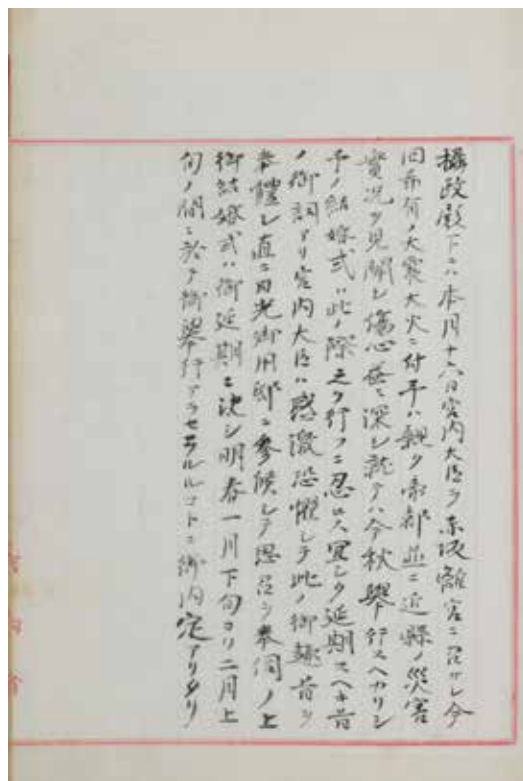 攝政殿下ニハ本月十六日宮内大臣ヲ赤坂離宮ニ召サレ今
回希有ノ大震大火ニ付予ハ親ク帝都並ニ近縣ノ災害
實況ヲ見聞シ傷心益々深シ就テハ今秋擧行スヘカリシ
予ノ結婚式ハ此ノ際之ヲ行フニ忍ヒス宜シク延期スヘキ旨
ノ御詞アリ宮内大臣ハ感激恐懼シテ此ノ御趣旨ヲ
奉體シ直ニ日光御用邸ニ參候シテ思召ヲ奉伺ノ上
御結婚式ハ御延期ニ決シ明春一月下旬ヨリ二月上
旬ノ間ニ於テ御擧行アラセラルルコトニ御内定アリタリ